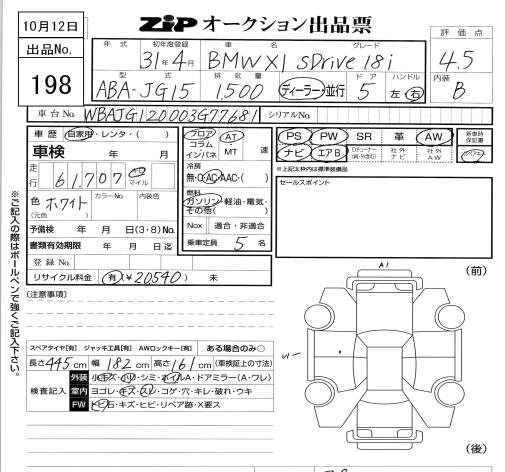 10月12日
ZiP オークション出品票
出品No.
198
年式 初年度登録 車名 グレード
31年4月 BMW X1 sDrive 18i
型式 排気量 ドア ハンドル
ABA-JG15 1,500 ディーラー・並行 5 左・右
評価点
4.5
内装
B
車台No. WBAJG120003G77681 シリアルNo.
車歴 自家用・レンタ・( )
車検 年 月
走行 61,707 km マイル
色 ホワイト カラーNo. 内装色
(元色)
予備検 年 月 日(3・8)No.
書類有効期限 年 月 日迄
登録No.
リサイクル料金 有(¥20,540) 未
フロア
コラム
インパネ
AT
MT 速
冷房
無・C・AC・AAC・( )
燃料
ガソリン・軽油・電気・
その他( )
Nox 適合・非適合
乗車定員 5 名
PS PW SR 革 AW
ナビ エアB Dチューナー 社外ナビ 社外AW
新車時保証書
スペアキー
*上記太枠内は標準装備品
セールスポイント
(注意事項)
スペアタイヤ[有] ジャッキ工具[有] AWロックキー[有] ある場合のみ○
長さ 445 cm 幅 182 cm 高さ 161 cm (車検証上の寸法)
検査記入
外装 小キズ・小ソ・シミ・ホイルA・ドアミラー(A・ワレ)
室内 ヨゴレ・キズ・スレ・コゲ・穴・キレ・破れ・ウキ
FW トビ石・キズ・ヒビ・リペア跡・X要ス
※ご記入の際はボールペンで強くご記入下さい。
A1
(前)
U1
(後)